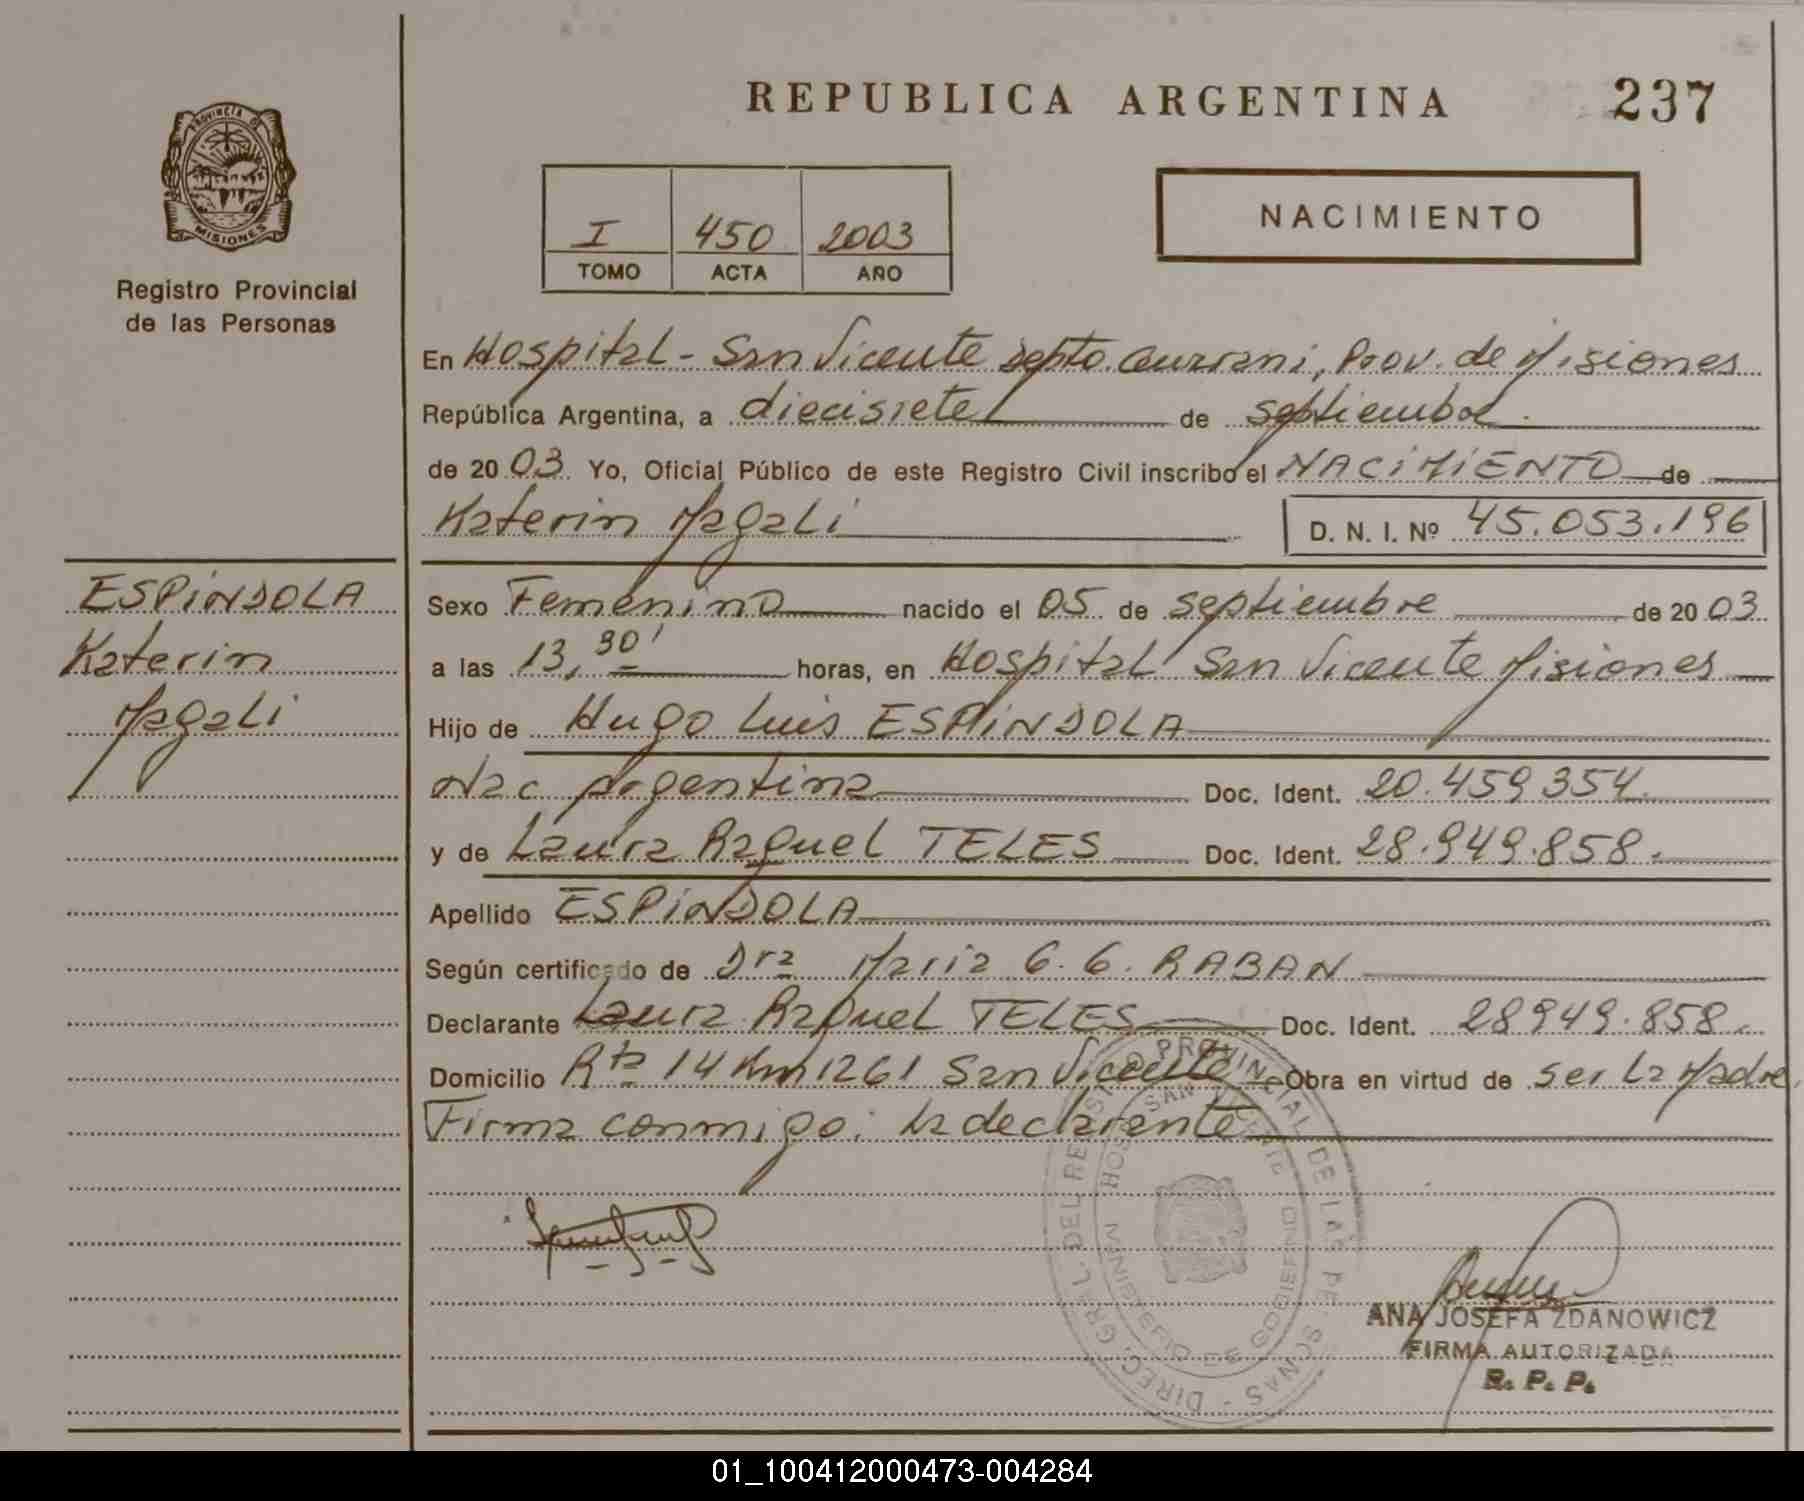 REPUBLICA ARGENTINA 237
PROVINCIA DE
MISIONES
Registro Provincial
de las Personas
I 450 2003
TOMO ACTA AÑO
NACIMIENTO
En Hospital - San Vicente Depto. Guarani, Prov. de Misiones
República Argentina, a diecisiete de septiembre
de 2003 Yo, Oficial Público de este Registro Civil inscribo el NACIMIENTO de
Katerin Magali D. N. I. Nº 45.053.196
ESPINDOLA
Katerin
Magali
Sexo Femenino nacido el 05 de septiembre de 2003
a las 13,30' horas, en Hospital San Vicente Misiones
Hijo de Hugo Luis ESPINDOLA
Nac Argentina Doc. Ident. 20.459.354
y de Laura Raquel TELES Doc. Ident. 28.949.858.
Apellido ESPINDOLA
Según certificado de Dra Maria G. G. RABAN
Declarante Laura Raquel TELES Doc. Ident. 28949.858.
Domicilio Rta 14 Km 1261 San Vicente Obra en virtud de ser la Madre.
Firma conmigo: la declarante
DIREC. GRAL. DEL REGISTRO PROVINCIAL DE LAS PERSONAS
HOSP. SAN VICENTE
MINISTERIO DE GOBIERNO
ANA JOSEFA ZDANOWICZ
FIRMA AUTORIZADA
R. P. P.
01_100412000473-004284